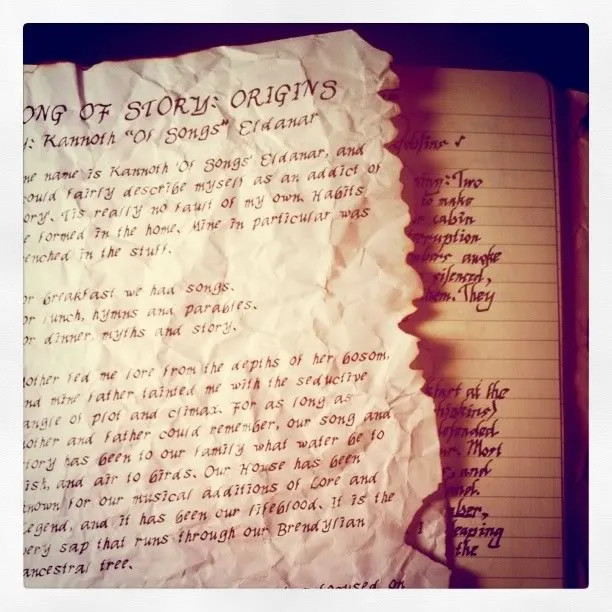 ONG OF STORY: ORIGINS
: Kannoth "Of Songs" Eldanar
ne name is Kannoth 'Of Songs' Eldanar, and
ould fairly describe myself as an addict of
ory. Tis really no fault of my own. Habits
e formed in the home. Mine in particular was
enched in the stuff.
or breakfast we had songs.
or lunch, hymns and parables.
or dinner, myths and story.
other fed me lore from the depths of her bosom,
nd mine father tainted me with the seductive
angle of plot and climax. For as long as
other and father could remember, our song and
tory has been to our family what water be to
ish, and air to birds. Our House has been
nown for our musical additions of Lore and
egend, and it has been our lifeblood. It is the
ery sap that runs through our Brendylian
ancestral tree.
on
Two
to make
cabin
awoke
silenced,
They
at the
Mort
and
leaping
the